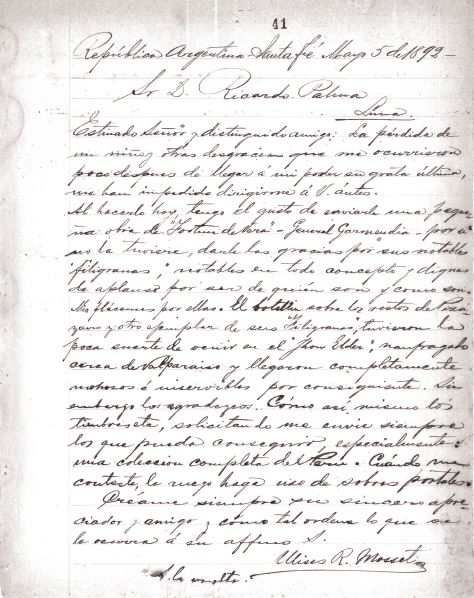 41
República Argentina - Santa Fé Mayo 5 de 1892 -
Sr D. Ricardo Palma
Lima
Estimado Señor y distinguido amigo: La pérdida de
un niño y otras desgracias que me ocurrieron
poco despues de llegar á mi poder su grata última,
me han impedido dirigirme á V. ántes.
Al hacerlo hoy, tengo el gusto de enviarle una peque
ña obra de - General Garmendia - por si
no la tuviere, darle las gracias por sus notables
"filigranas", notables en todo concepto y dignas
de aplauso por ser de quién son y como son.
Mis plácemes por ellas. El boletin sobre los restos de Piza
zarro y otro ejemplar de sus "Filigranas", tuvieron la
poca suerte de venir en el "Jhon Elder", naufragado
cerca de Valparaiso y llegaron completamente
mohosos é inservibles por consiguiente. Sin
embargo los agradezco. Cómo así mismo los
timbres etа, solicitando me envie siempre
los que pueda conseguir, especialmente:
una coleccion completa del Perú. Cuándo me
conteste, le ruego haga uso de sobres postales.
Créame siempre su sincero apre
ciador y amigo y como tal ordene lo que se
le ocurra á su affmo S.
Ulises R. Mosset
A la vuelta.